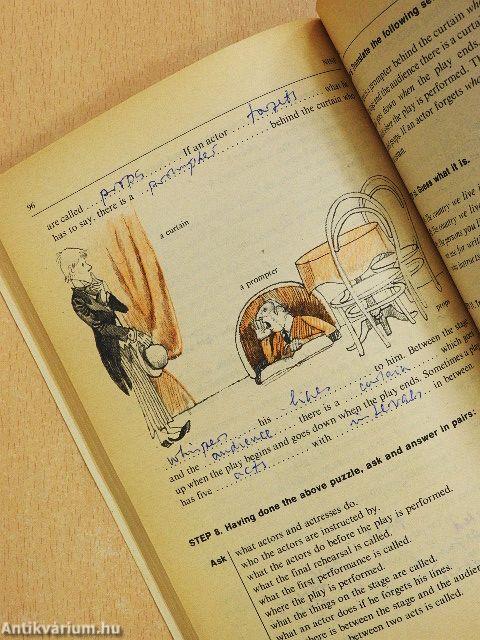 96
are called props If an actor forgets what he
has to say, there is a prompter behind the curtain who
a curtain
a prompter
props
whispers his lines to him. Between the stage
and the audience there is a curtain which goes
up when the play begins and goes down when the play ends. Sometimes a play
has five acts with intervals in between.
STEP 8. Having done the above puzzle, ask and answer in pairs:
Ask what actors and actresses do.
who the actors are instructed by.
what the actors do before the play is performed.
what the final rehearsal is called.
what the first performance is called.
where the play is performed.
what the things on the stage are called.
what an actor does if he forgets his lines.
there is between the stage and the audien
between two acts is called.
Translate the following se
prompter behind the curtain who
and the audience there is a curta
goes down when the play ends.
the play is performed. Th
props. If an actor forgets who
Guess what it is.
the country we live i
the country we live
the persons you li
Antikvárium.hu